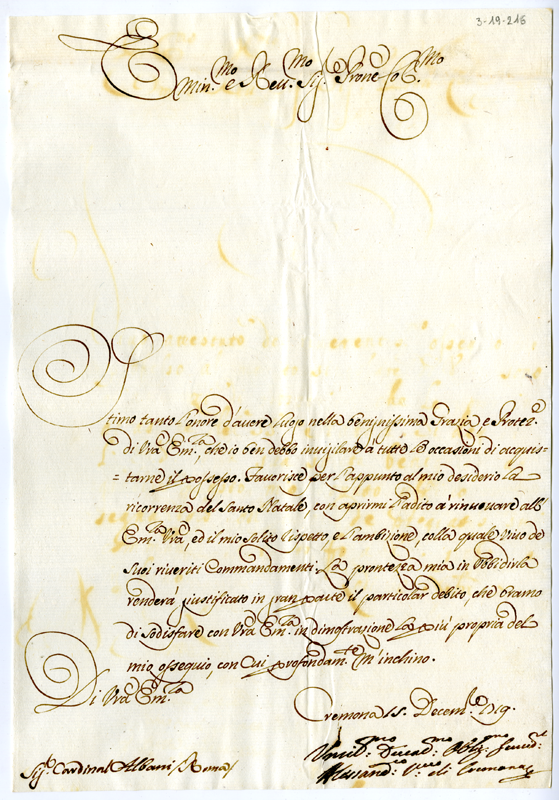 3-19-216
Emin.mo e Rev.mo Sig.r Prone Col.mo
Stimo tanto l'onore d'avere luogo nella benignissima Grazia, e Protez.e
di Vra Em.za, che io ben debbo invigilare à tutte le occasioni di acquis=
=tarne il possesso. Favorisce per l'appunto al mio desiderio la
ricorrenza del Santo Natale, con aprirmi l'adito à rinnovare all'
Em.za Vra, ed il mio solito rispetto, e l'ambizione, colla quale vivo de
suoi riveriti Commandamenti. La prontezza mia in Ubbidirla
renderà giustificato in gran parte il particolar debito, che bramo
di sodisfare con Vra Em.za in dimostrazione la più propria del
mio ossequio, con cui profondam.te m'inchino.
Di Vra Em.za
Cremona 15. Decemb.e 1719.
Umil.mo Devot.mo Obblig.mo
Alessand.o Vesc.o di Cremona
Sig.r Cardinal Albani / Roma /